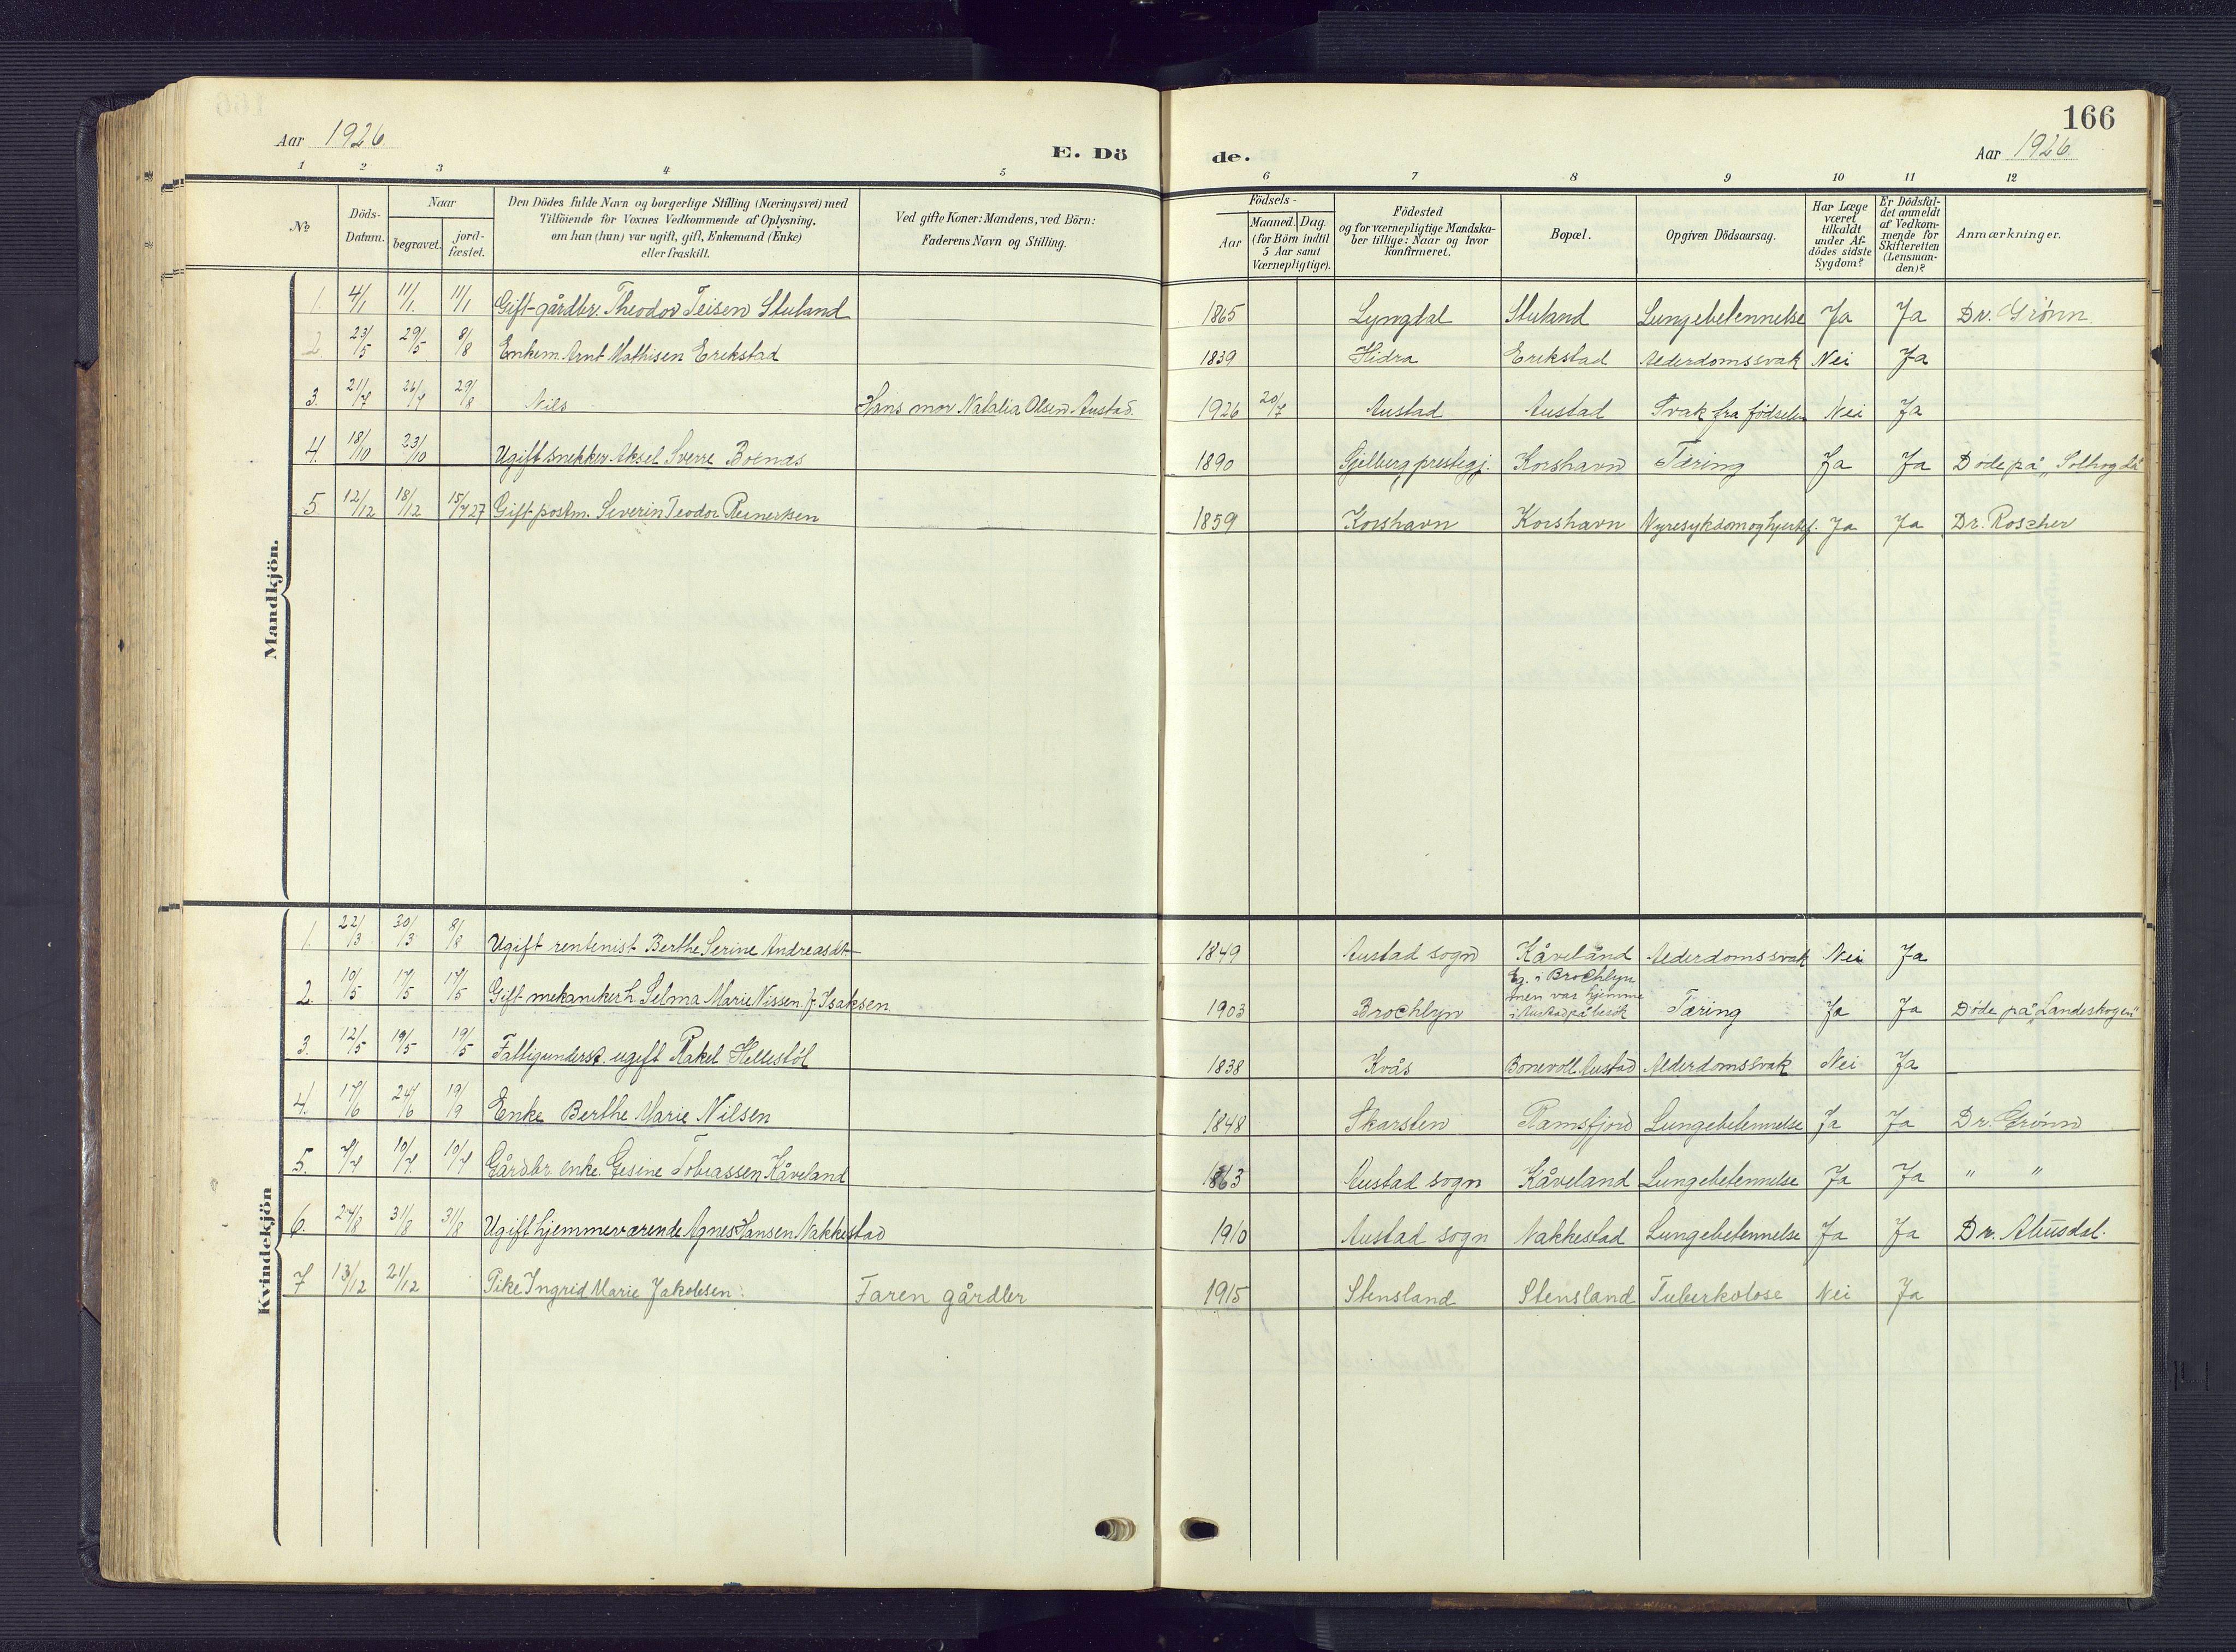 166
Aar 1926.
E. Dö
de.
Aar 1926.
1 2 3 4 5 6 7 8 9 10 11 12
No
Döds-Datum.
Naar
begravet.
jord-fæstet.
Den Dödes fulde Navn og borgerlige Stilling (Næringsvei) med
Tilföiende for Voxnes Vedkommende af Oplysning,
om han (hun) var ugift, gift, Enkemand (Enke)
eller fraskilt.
Ved gifte Koner: Mandens, ved Börn:
Faderens Navn og Stilling.
Födsels-
Aar
Maaned. Dag.
(for Börn indtil
5 Aar samt
Værnepligtige).
Födested
og for værnepligtige Mandska-
ber tillige: Naar og hvor
konfirmeret.
Bopæl.
Opgiven Dödsaarsag.
Har Læge
været
tilkaldt
under Af-
dödes sidste
Sygdom?
Er Dödsfal-
det anmeldt
af Vedkom-
mende for
Skifteretten
(Lensman-
den)?
Anmærkninger.
Mandkjön.
1. 4/1 11/1. 11/1 Gift gårdbr. Theodor Teisen Stuland 1865 Lyngdal Stuland Lungebetennelse Ja Ja Dr. Grönn.
2. 23/5 29/5 8/8 Enkem. Arnt Mathisen Erikstad 1839 Hidra Erikstad Alderdomssvak Nei Ja
3. 21/7 26/7 29/8 Nils Hans mor Natalia Olsen Austad. 1926 20/7 Austad Austad Svak fra födselen Nei Ja
4. 18/10 23/10 Ugift snekker Aksel Sverre Boenæs 1890 Gjelberg prestegj. Korshavn Tæring Ja Ja Döde på "Solhögda
5 12/12 18/12 15/7 27 Gift postm. Severin Teodor Reinertsen 1859 Korshavn Korshavn Nyresykdom og hjertef. Ja Ja Dr. Roscher
Kvindekjön
1. 22/3 30/3 8/8 Ugift rentenist Berthe Serine Andreasdt 1849 Austad sogn Kåveland Alderdomssvak Nei Ja
2. 10/5 17/5 17/5 Gift mekanikerh. Selma Marie Nissen f. Isaksen 1903 Brochlyn Eg. i Brochlyn
men var hjemme
i Austad på besök Tæring Ja Ja Döde på "Landeskogen"
3. 12/5 19/5 19/5 Fattigunderst. ugift Rakel Hellestöl 1838 Kvås Bonevoll Austad Alderdomssvak Nei Ja
4. 17/6 24/6 19/9 Enke Berthe Marie Nilsen 1848 Skarsten Ramsfjord Lungebetennelse Ja Ja Dr. Grönn
5. 7/7 10/7. 10/7 Gårdbr. enke. Gesine Tobiassen Kåveland 1863 Austad sogn Kåveland Lungebetennelse Ja Ja " "
6. 24/8 31/8 31/8 Ugift hjemmeværende Agnes Hansen Nakkestad 1910 Austad sogn Nakkestad Lungebetennelse Ja Ja Dr.
7 13/12 21/12 Pike Ingrid Marie Jakobsen. Faren gårdbr 1915 Stensland Stensland Tuberkolose Nei Ja